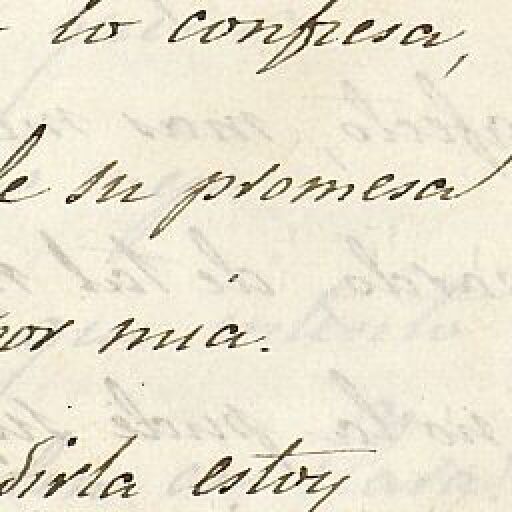 lo confiesa,
de su promesa
por mia.
dirla estoy